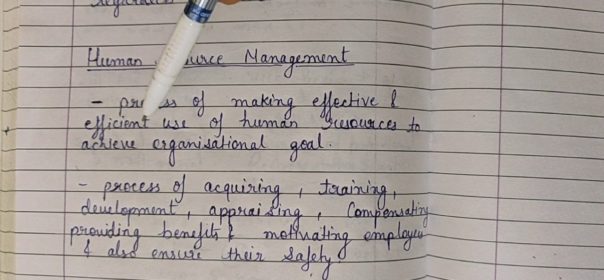 Human Management
- of making effective &
efficient use of human resources to
achieve organisational goal.
- process of acquiring, training,
development, appraising, Compensating
providing benefits & motivating employees
& also ensure their safety